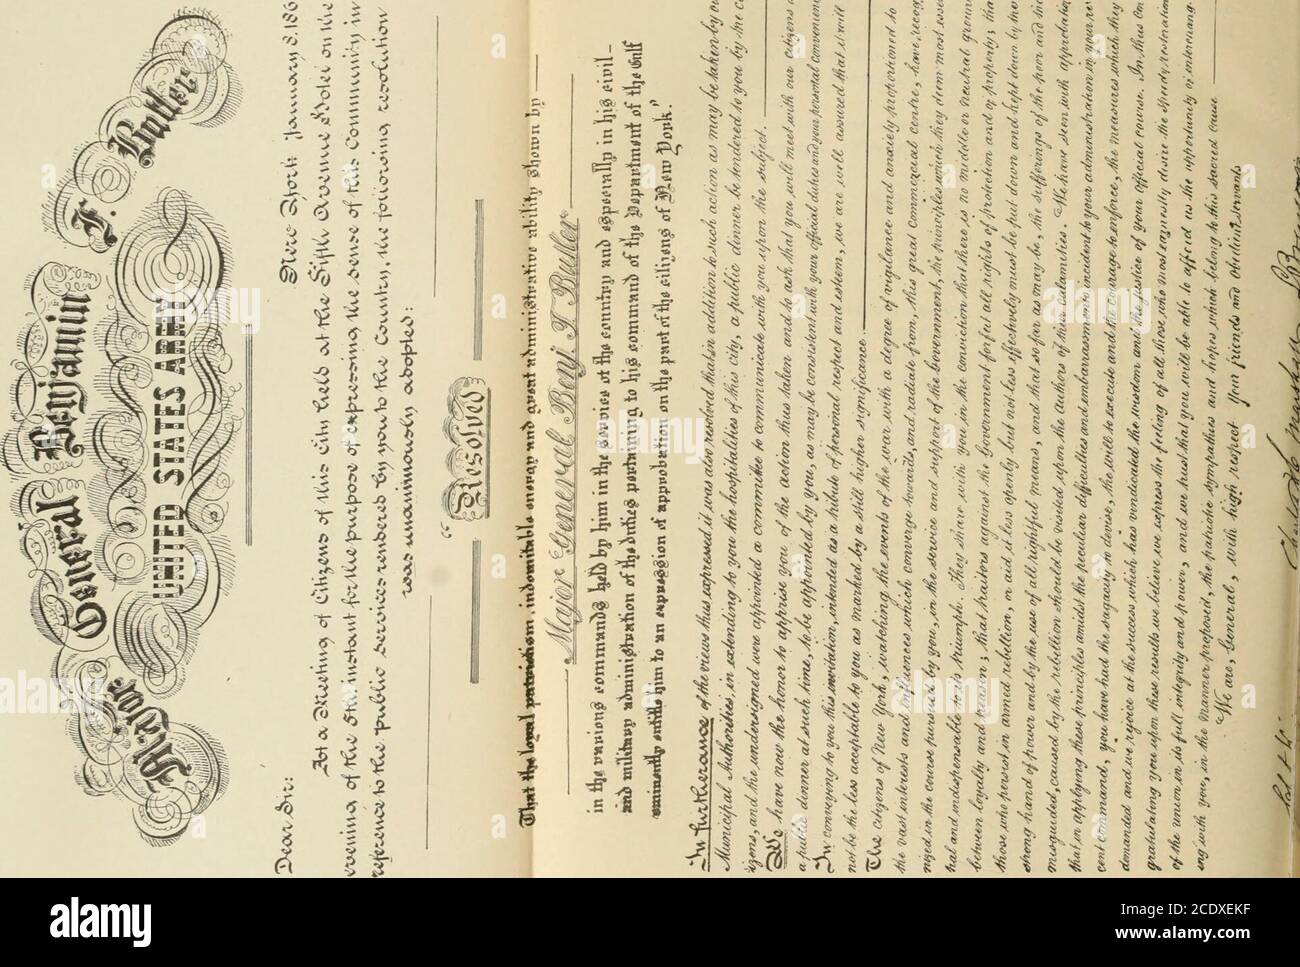 Major General Benjamin F. Butler
UNITED STATES ARMY
New York January 8, 186
Dear Sir:
At a Meeting of Citizens of this City held at the Fifth Avenue Hotel on the
evening of the 5th instant for the purpose of expressing the sense of this Community in
reference to the public services rendered by you to the Country, the following resolution
was unanimously adopted:
"Resolved
That the loyal patriotism, indomitable energy and great administrative ability shown by
Major General Benj. F. Butler
in the various commands held by him in the service of the country and especially in his civil
and military administration of the duties pertaining to his command of the Department of the Gulf
eminently entitle him to an expression of approbation on the part of the citizens of New York."
In furtherance of the views thus expressed, it was also resolved that in addition to such action as may be taken by our
Municipal Authorities, in extending to you the hospitalities of this city, a public dinner be tendered to you by the cit
izens, and the undersigned were appointed a committee to communicate with you upon the subject.
We have now the honor to apprise you of the action thus taken and to ask that you will meet with our citizens at
a public dinner at such time, to be appointed by you, as may be consistent with your official duties and your personal convenience
In conveying to you this invitation, intended as a tribute of personal respect and esteem, we are well assured that it will
not be the less acceptable to you as marked by a still higher significance.
The citizens of New York, watching the events of the war with a degree of vigilance and anxiety proportioned to
the vast interests and influences which converge towards, and radiate from, this great Commercial Centre, have recog
nized in the course pursued by you, in the service and support of the Government, the principles which they deem most essen
tial and indispensable to its triumph. They share with you in the conviction that there is no middle or neutral ground
between loyalty and treason; that traitors against the Government forfeit all rights of protection and of property; that
those who persist in armed rebellion, or aid it less openly but not less effectively must be put down and kept down by the
strong hand of power and by the use of all rightful means, and that so far as may be, the sufferings of the poor and the
misguided, caused by the rebellion should be visited upon the authors of their calamities. We have seen with approbation
that in applying these principles amidst the peculiar difficulties and embarrassments incident to your administration in your re
cent command, you have had the sagacity to devise, the will to execute and the courage to enforce, the measures which they
demanded and we rejoice at the success which has vindicated the wisdom and the justice of your official course. In thus con
gratulating you upon these results we believe we express the feeling of all those who most earnestly desire the speedy restoration
of the union in its full integrity and power, and we trust that you will be able to afford us the opportunity of interchang-
ing with you, in the manner proposed, the patriotic sympathies and hopes which belong to this sacred cause
We are, General, with high respect Your friends and obedient servants
alamy
Image ID: 2CDXEKF
www.alamy.com